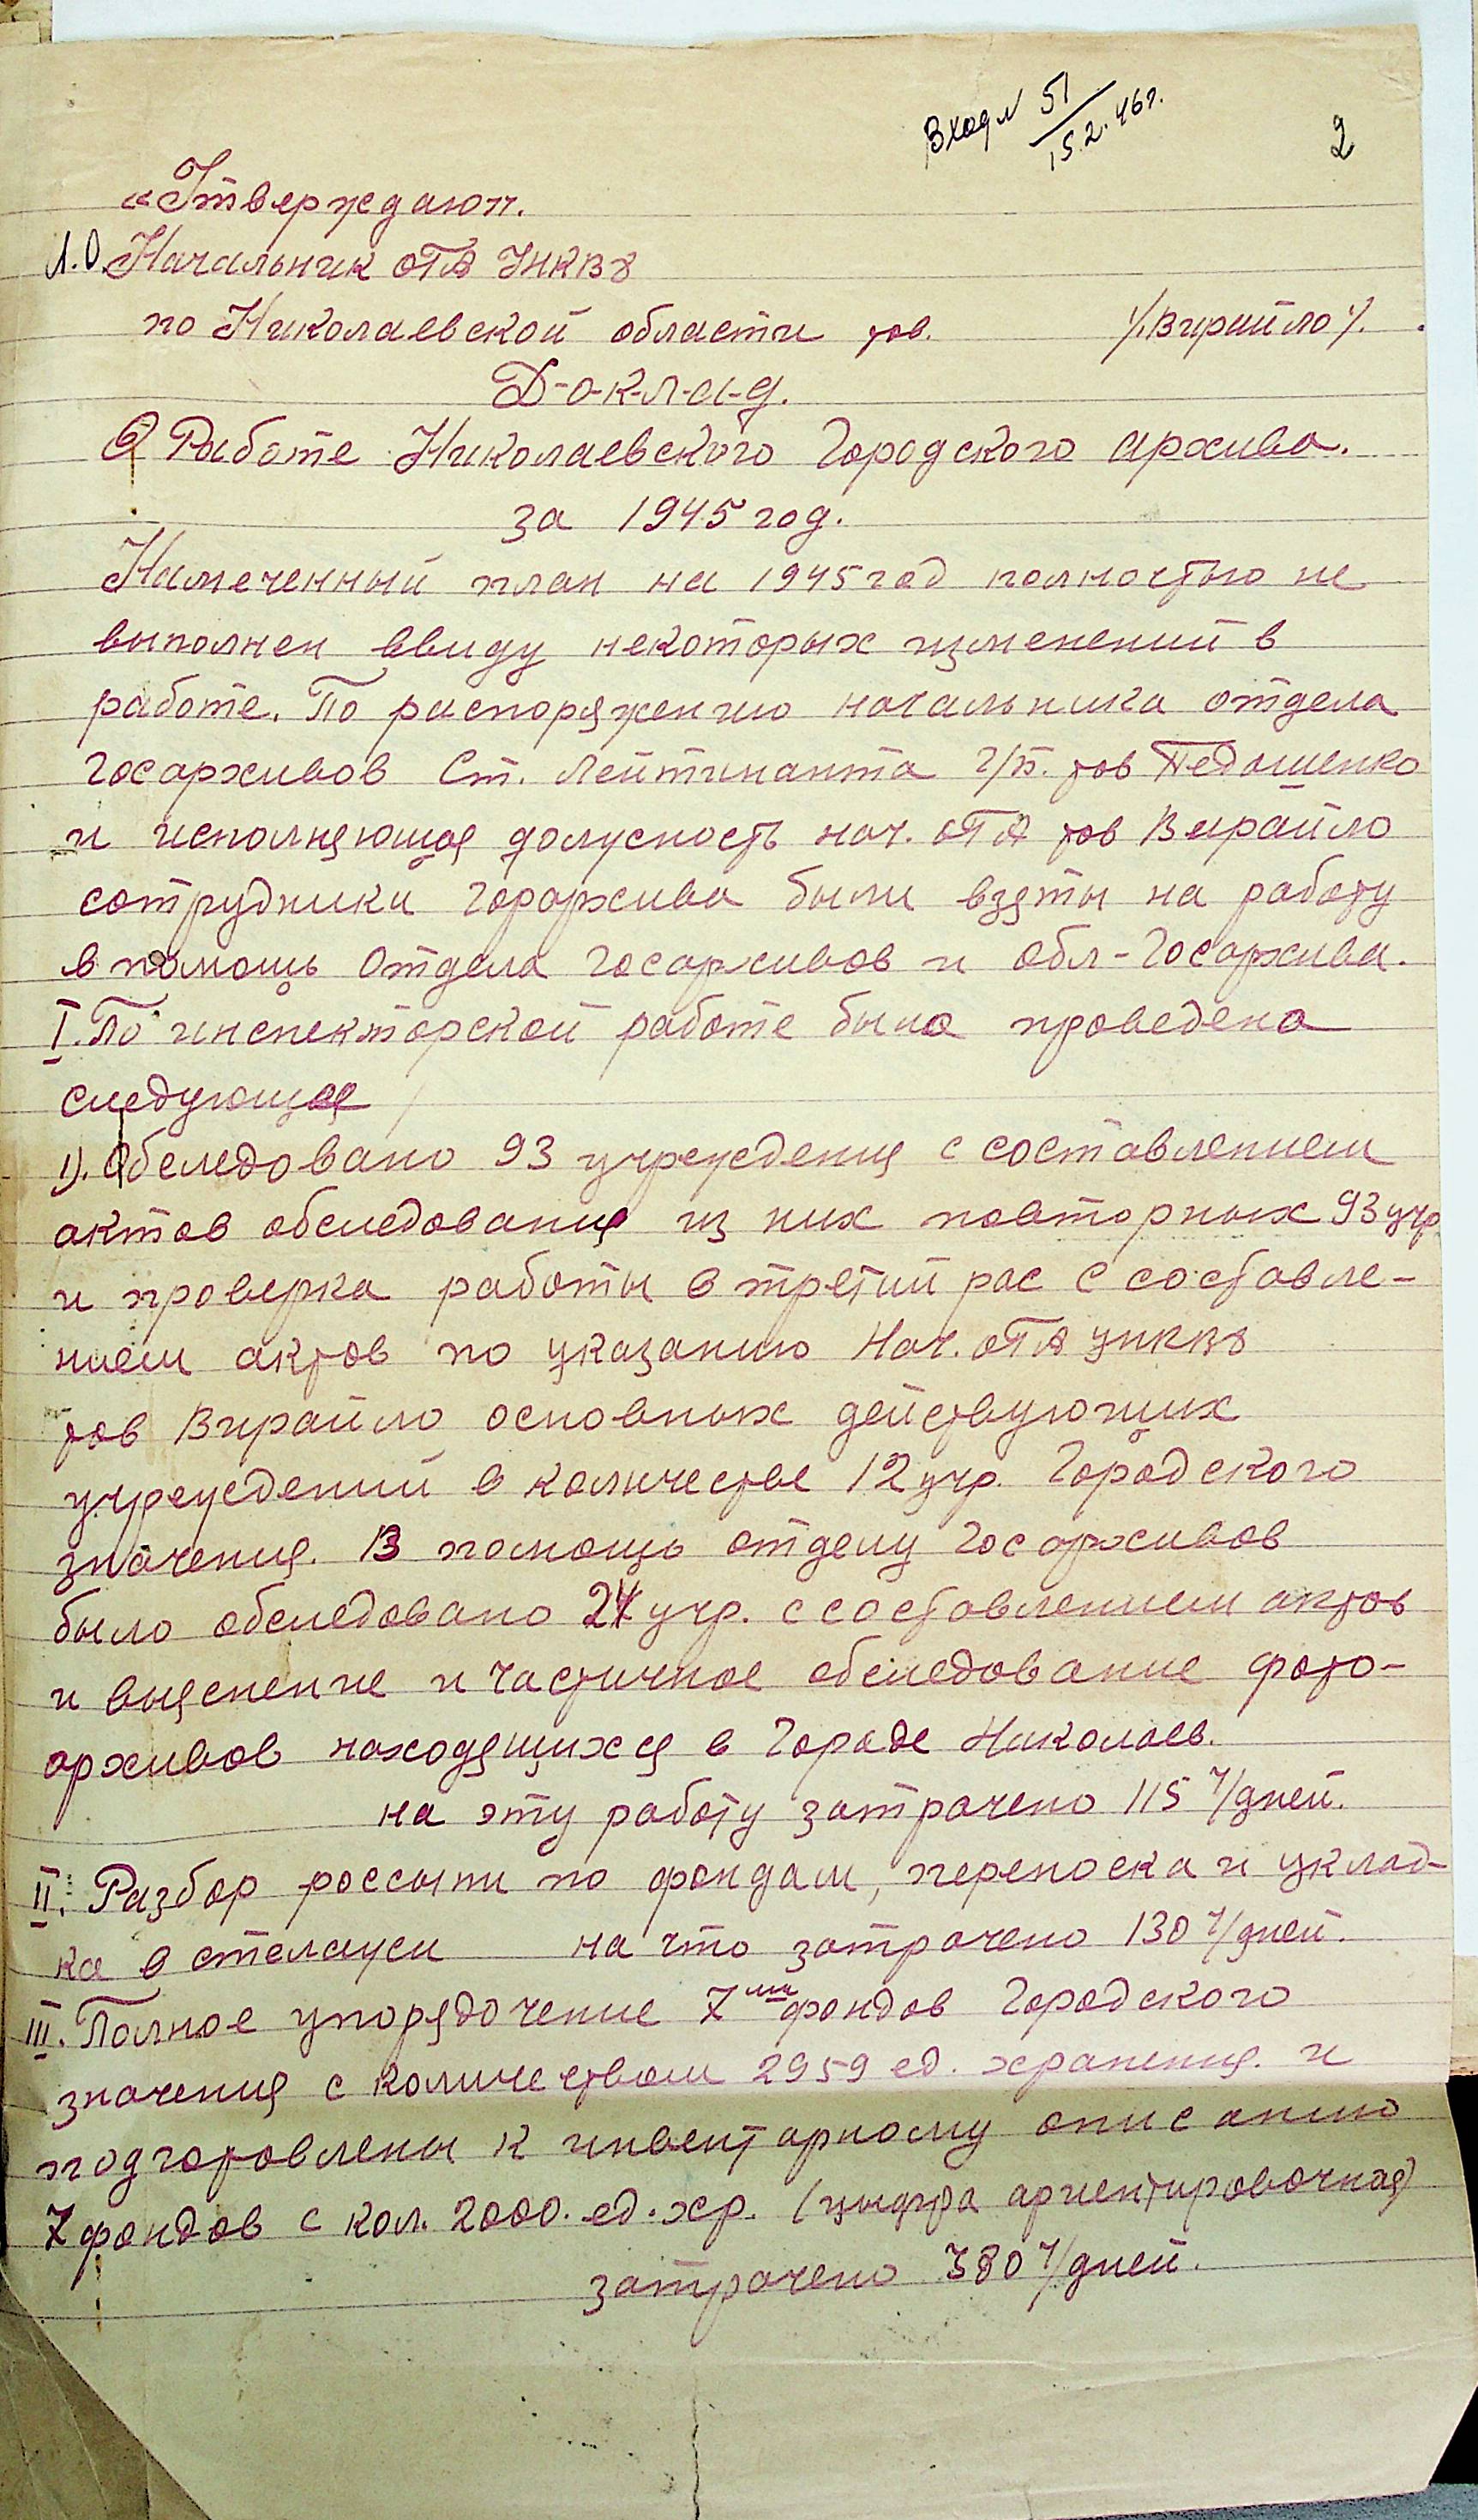 Вход № 51
15.2.46г.
2
«Утверждаю».
И.О. Начальник ОГА УНКВД
по Николаевской области тов. /Вирайло/.
Д-о-к-л-а-д.
О Работе Николаевского Городского архива.
за 1945 год.
Намеченный план на 1945 год полностью не
выполнен ввиду некоторых изменений в
работе. По распоряжению начальника отдела
Госархивов Ст. Лейтинанта г/б. тов Педошенко
и исполняющая должность нач. ОГА тов Вирайло
сотрудники Горархива были взяты на работу
в помощь Отдела Госархивов и Обл-Госархива.
I. По инспекторской работе была проведена
следующая
1). Обследовано 93 учреждения с составлением
актов обследования из них повторных 93 учр
и проверка работы в третий рас с составле-
нием актов по указанию Нач. ОГА УНКВД
тов Вирайло основных действующих
учреждений в количестве 12 учр. Городского
значения. В помощь отделу Госархивов
было обследовано 24 учр. с составлением актов
и выяснение и частичное обследование фото-
архивов находящихся в Городе Николаев.
на эту работу затрачено 115 ч/дней.
II. Разбор россыпи по фондам, переноска и уклад-
ка в стелажи на что затрачено 130 ч/дней.
III. Полное упорядочение 7ми фондов Городского
значения с количеством 2959 ед. хранения. и
подготовлены к инвентарному описанию
7 фондов с кол. 2000. ед. хр. (цыфра ариентировочная)
затрачено 380 ч/дней.